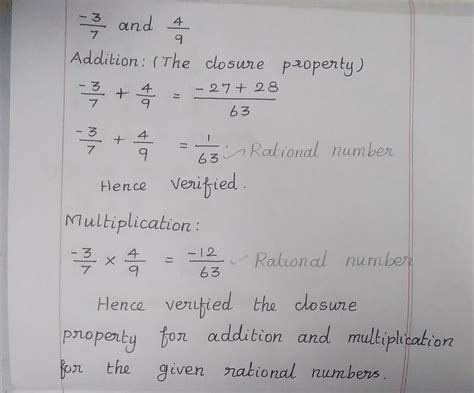 -3/7 and 4/9
Addition: (The closure property)
-3/7 + 4/9 = -27 + 28/63
-3/7 + 4/9 = 1/63. ✓ Rational number
Hence verified.
Multiplication:
-3/7 × 4/9 = -12/63 ✓ Rational number
Hence verified the closure
property for addition and multiplication
for the given rational numbers.